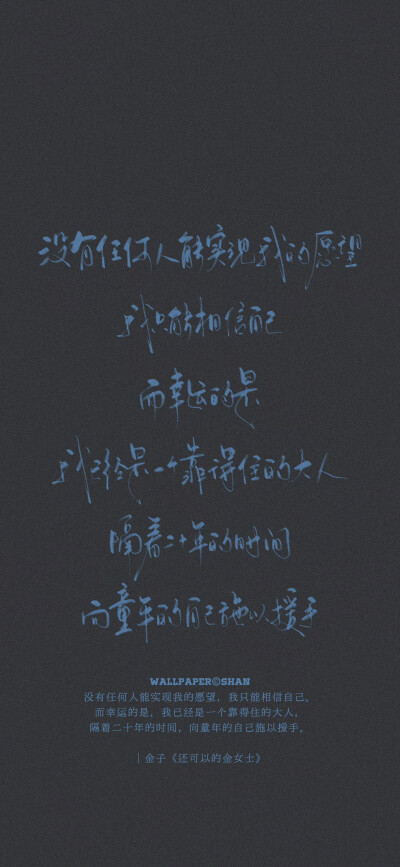 没有任何人能实现我的愿望
我只能相信自己
而幸运的是
我已经是一个靠得住的大人
隔着二十年的时间
向童年的自己施以援手
WALLPAPER©SHAN
没有任何人能实现我的愿望，我只能相信自己。
而幸运的是，我已经是一个靠得住的大人，
隔着二十年的时间，向童年的自己施以援手。
｜金子《还可以的金女士》